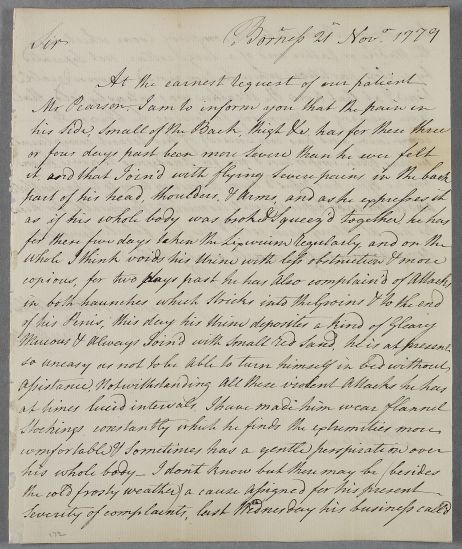 Sir Borness 21st Novr 1779
At the earnest request of our patient
Mr Pearson, I am to inform you that the pain in
his Side, Small of the Back, thigh &c, has for these three
or four days past been more severe than he ever felt
it, and that Joind with flying severe pains in the back
part of his head, Shoulders, & Arms, and as he expresses it
as if his whole body was & Squeez'd together he has
for these few days taken the Regularly, and on the
whole I think voids his Urine with less obstruction & more
copious, for two days past he has Also complain'd of Attacks
in both haunches which Strick into the Groins & to the end
of his Penis, this day his Urine deposites a kind of Gleary
Mucous & Always Joind with Small red Sand, he is at present
so uneasy as not to be able to turn himself in bed without
Assistance, Notwithstanding All these violent Attacks he has
at times lucid intervals, I have made him wear flannel
Stockings constantly which he finds the extremities more
comfortable & Sometimes has a gentle perspiration over
his whole body - I dont know but there may be (besides
the cold frosty weather) a cause assigned for his present
Severity of complaints, last Wednesday his business call'd
172